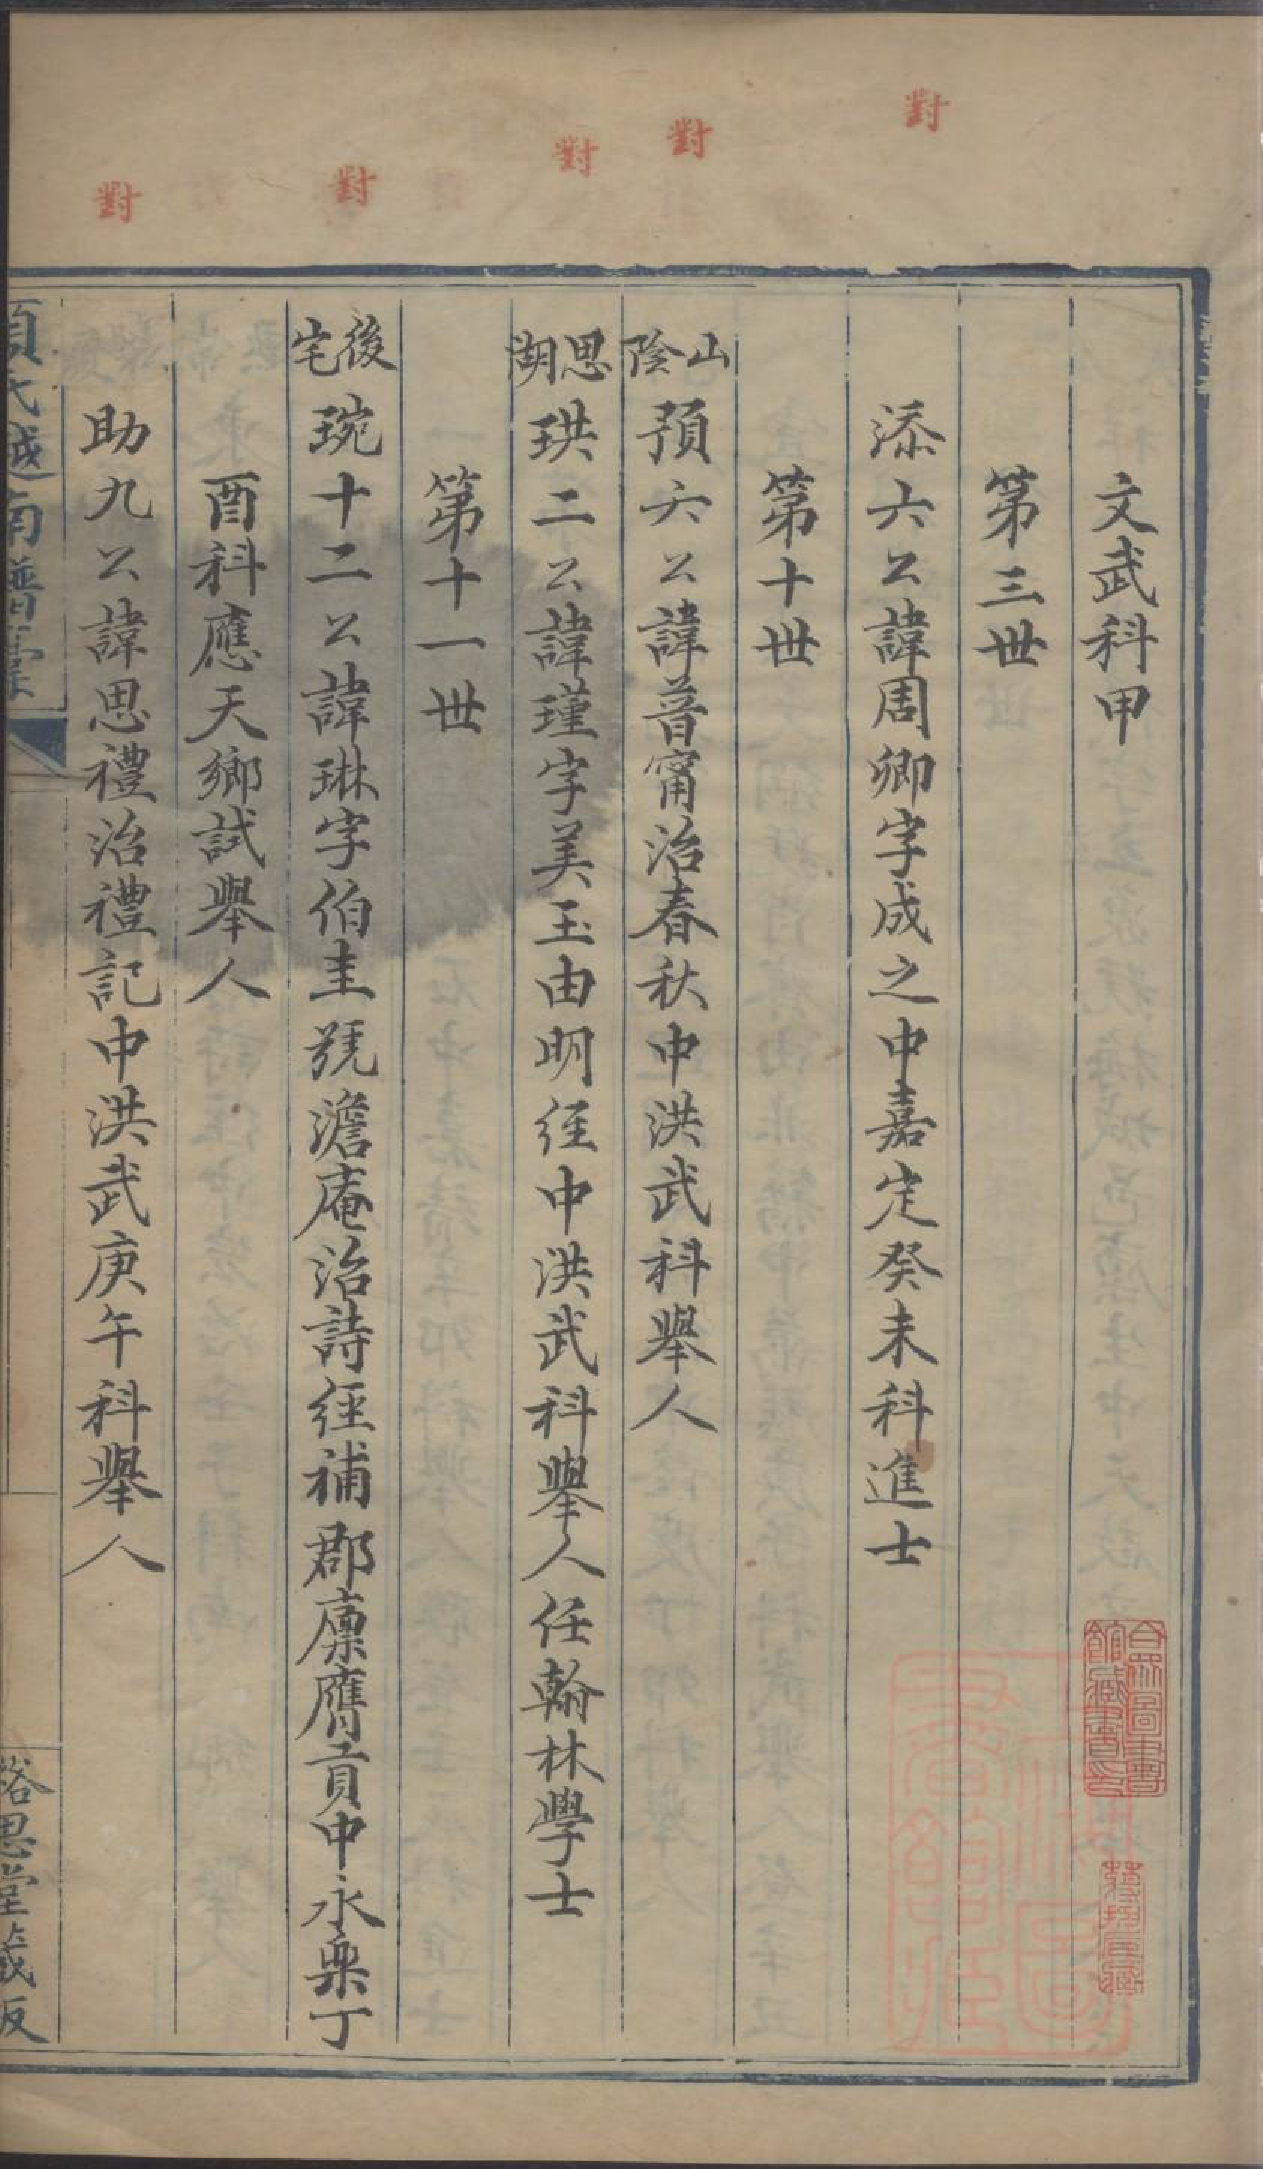 對
對
對
對
對
文武科甲
第三世
添六公諱周卿字成之中嘉定癸未科進士
第十世
山陰
預六公諱晉甯治春秋中洪武科舉人
思湖
珙二公諱瑾字美玉由明經中洪武科舉人任翰林學士
第十一世
後宅
琬十二公諱琳字伯圭號澹庵治詩經補郡廩膺貢中永樂丁
酉科應天鄉試舉人
助九公諱思禮治禮記中洪武庚午科舉人
項氏越南譜
思堂藏板
合眾圖書館藏書印